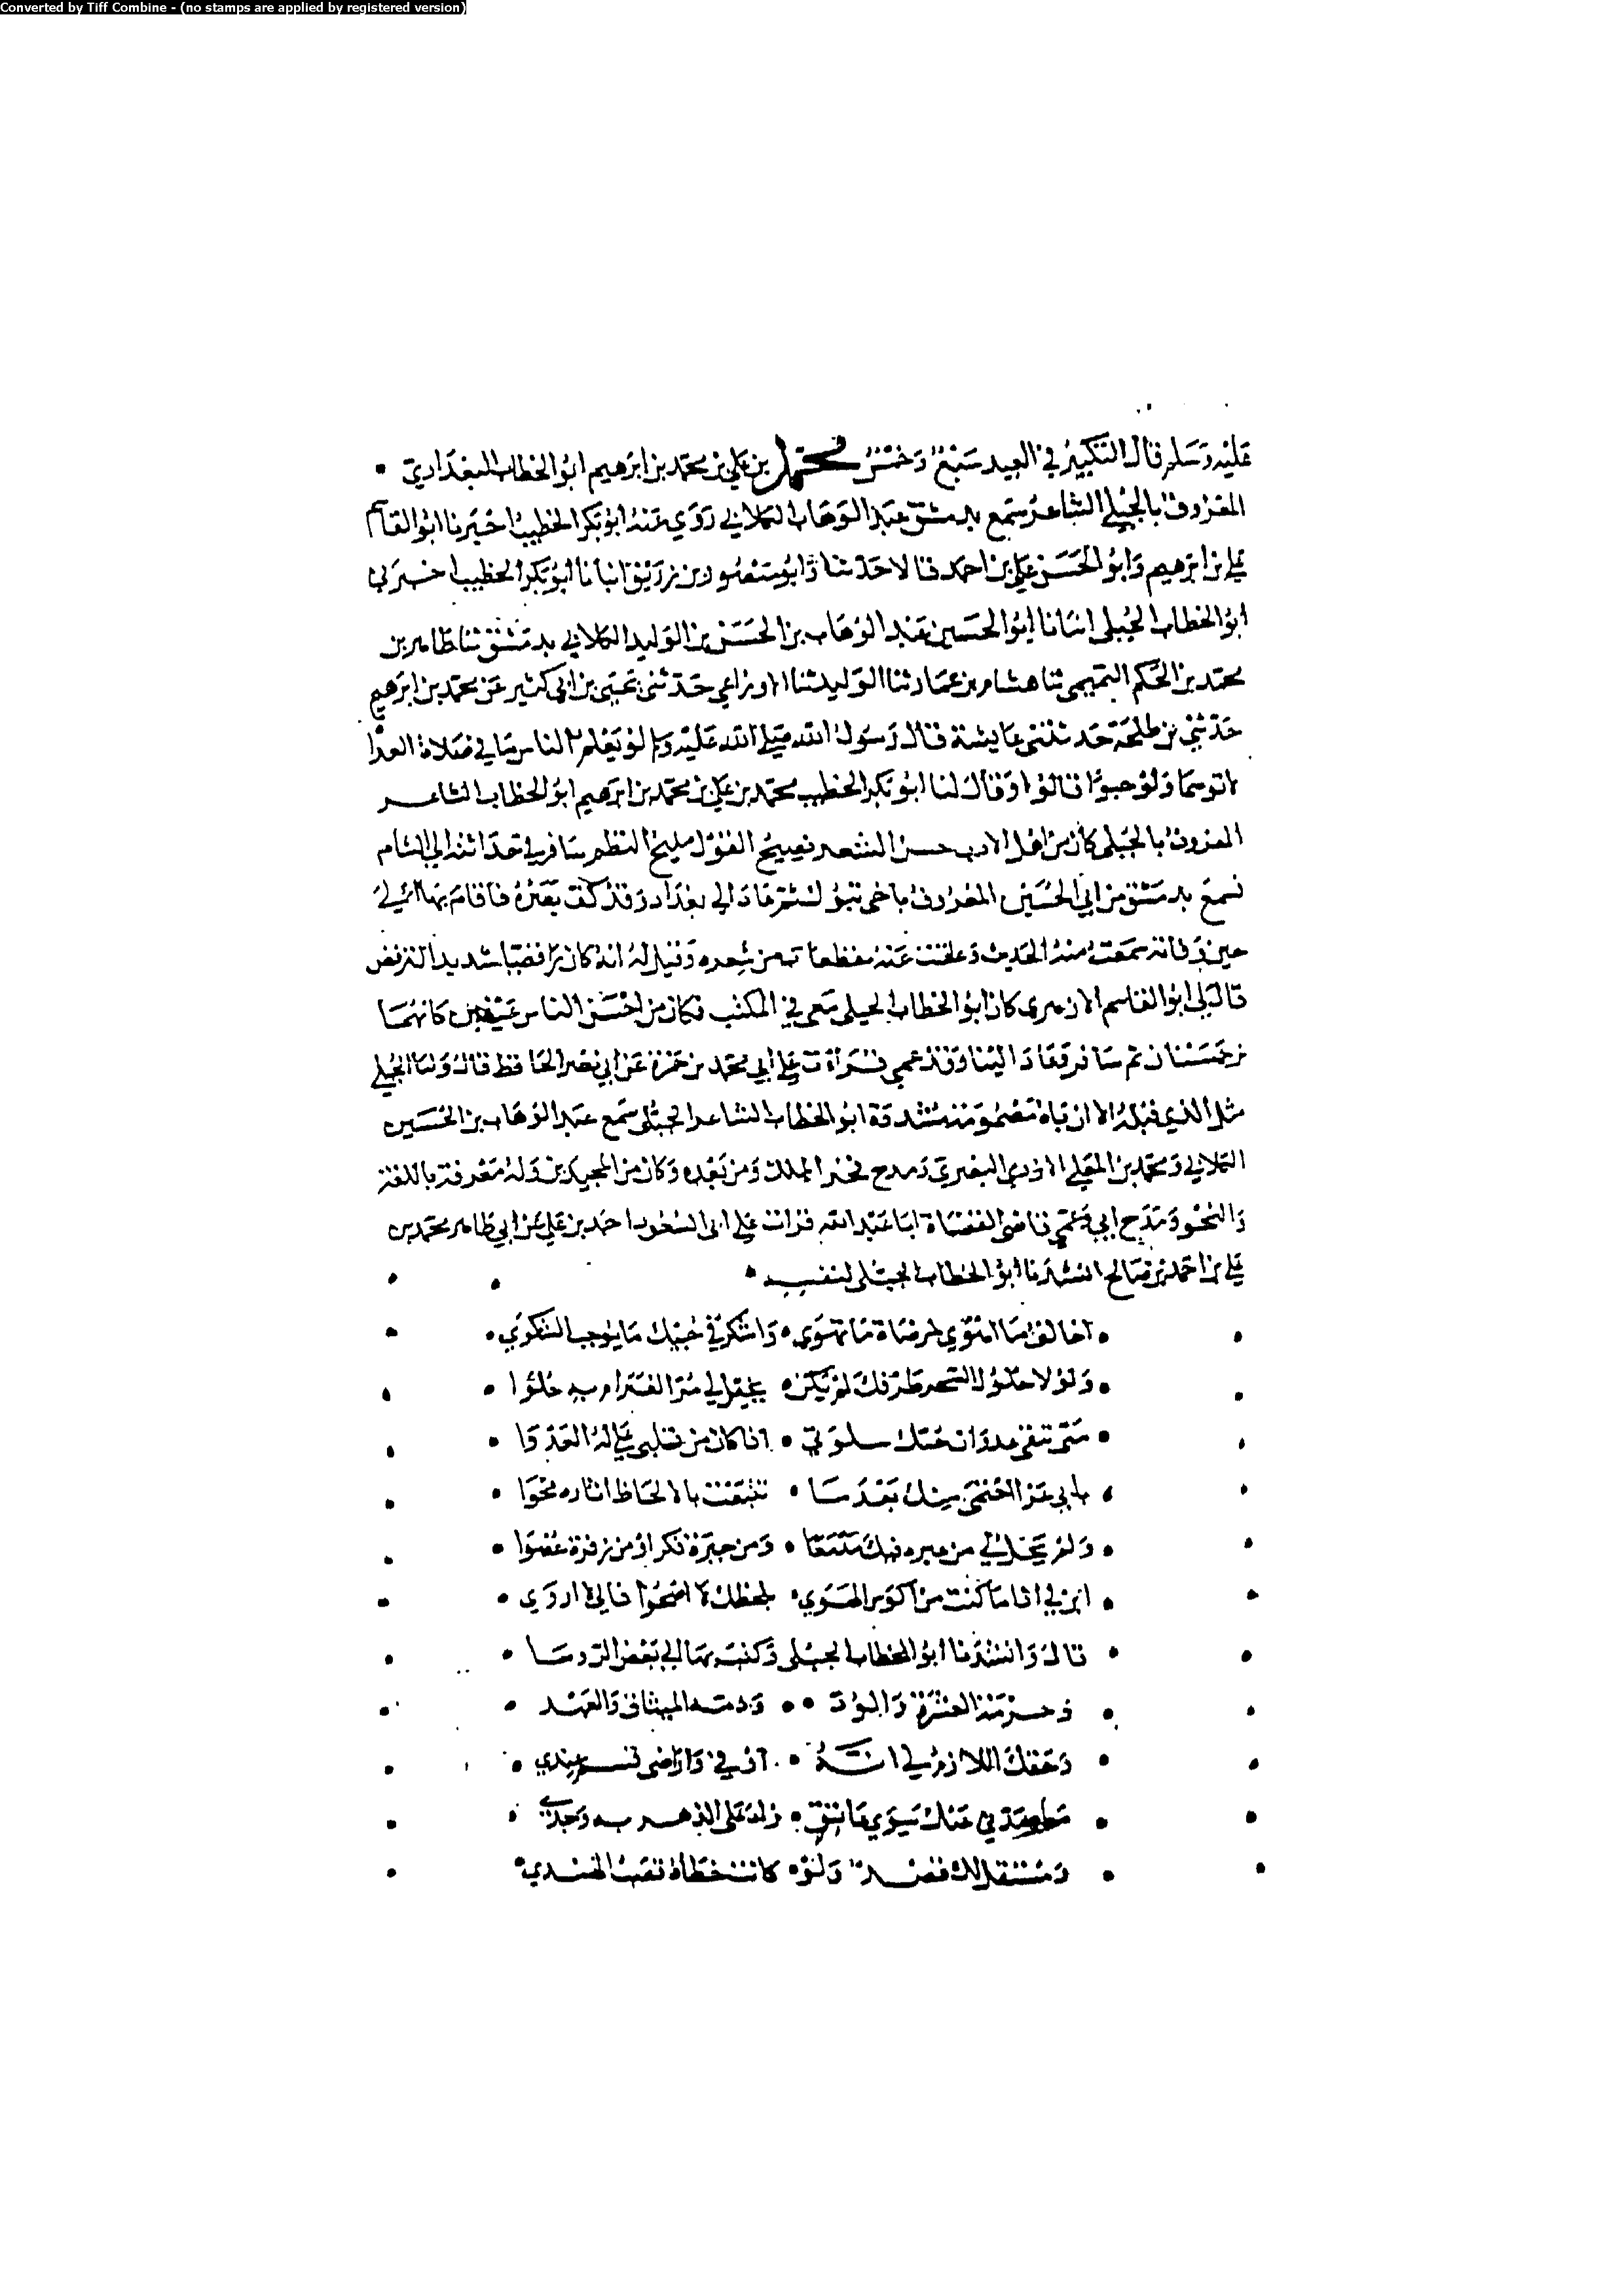 Converted by Tiff Combine - (no stamps are applied by registered version)
عليه وسلم قال التكبير في العيد سبع وخمس محمد بن علي بن محمد بن ابرهيم ابو الخطاب البغدادي
المعروف بالجبلي الشاعر سمع بدمشق عبد الوهاب الكلابي روى عنه ابو بكر الخطيب اخبرنا ابو القاسم
علي بن ابرهيم وابو الحسن علي بن احمد قالا حدثنا وابو منصور بن زريق انبانا ابو بكر الخطيب اخبرني
ابو الخطاب الجبلي انبانا ابو الحسين عبد الوهاب بن الحسن بن الوليد الكلابي بدمشق ثنا طاهر بن
محمد بن الحكم التميمي ثنا هشام بن عمار ثنا الوليد ثنا الاوزاعي حدثني يحيى بن ابي كثير عن محمد بن ابرهيم
حدثني بن طلحة حدثتني عايشة قال رسول الله صلى الله عليه ولم لو يعلم الناس ما في صلاة الغدا
لاتوهما ولو حبوا قالوا وقال لنا ابو بكر الخطيب محمد بن علي بن محمد بن ابرهيم ابو الخطاب الشاعر
المعروف بالجبلي كان من اهل الادب حسن الشعر فصيح القول مليح النظم سافر في حداثته الى الشام
فسمع بدمشق من ابي الحسين المعروف باخي تبوك ثم عاد الى بغداد وقد كف بصره فاقام بها الى
حين وفاته سمعت منه الحديث وعلقت عنه مقطعات من شعره وقيل له انه كان رافضيا شديد الترفض
قال لي ابو القاسم الازهري كان ابو الخطاب الجبلي معي في المكتب فكان من احسن الناس عينين كانهما
نرجستان ثم سافر فعاد الينا وقد عمي قرات علي ابي محمد بن حمزة عن ابي نصر الحافظ قال واما الجبلي
مثل الذي قبله الا ان باه مضمومة مشددة ابو الخطاب الشاعر الجبلي سمع عبد الوهاب بن الحسين
الكلابي ومحمد بن المعلى الازدي البصري ومدح فخر الملك ومن بعده وكان من المجيدين وله معرفة باللغة
والنحو ومدح ابي وعمي قاضي القضاة ابا عبد الله قرات على ابي السعود احمد بن علي عن ابي طاهر محمد بن
علي بن احمد بن صالح انشدنا ابو الخطاب الجبلي لنفسه
اخالف ما اهوى لمرضاة ما تهوى واشكر في حبيك ما يوجب الشكوى
ولولا حلول السحر طرفك لم يكن يخيل لي مر الغرام به حلوا
متى تنقى عدوان حبك سلوتي اذا كان من قلبي علي له العدوا
بمن اختفى منك بعدما تتبعت بالالحاظ اثاره محوا
ولم يخل لي من عبره فيك ومن حيرة فكرا ومن زفرة عضوا
ابن لي اذا ما كنت من اكوس الهوى بلحظك لا اصحوا فاني اروى
قال وانشدنا ابو الخطاب الجبلي وكتب بها الي بعض الروسا
وحرمة العشرة والود وذمة الميثاق والعهد
وحقك اللازم لي انه اوفى واراضى قسم عندي
ما صدني عنك سوى عائق زاد على الدهر به وجدي
ومستقل لك قصد ولو كانت خطاه قصب الهندي